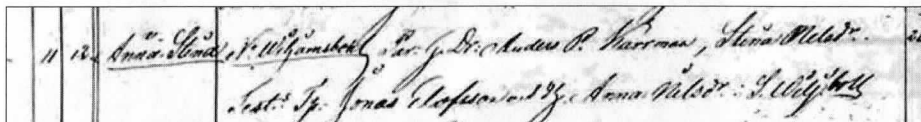 11 12 Anna-Stina N. Wiljamsboh Par: J. Dr: Anders P. Kärrman, Stina Nelsdr.
Test: Jonas Elofsson Anna Nilsdr: S. Wilj